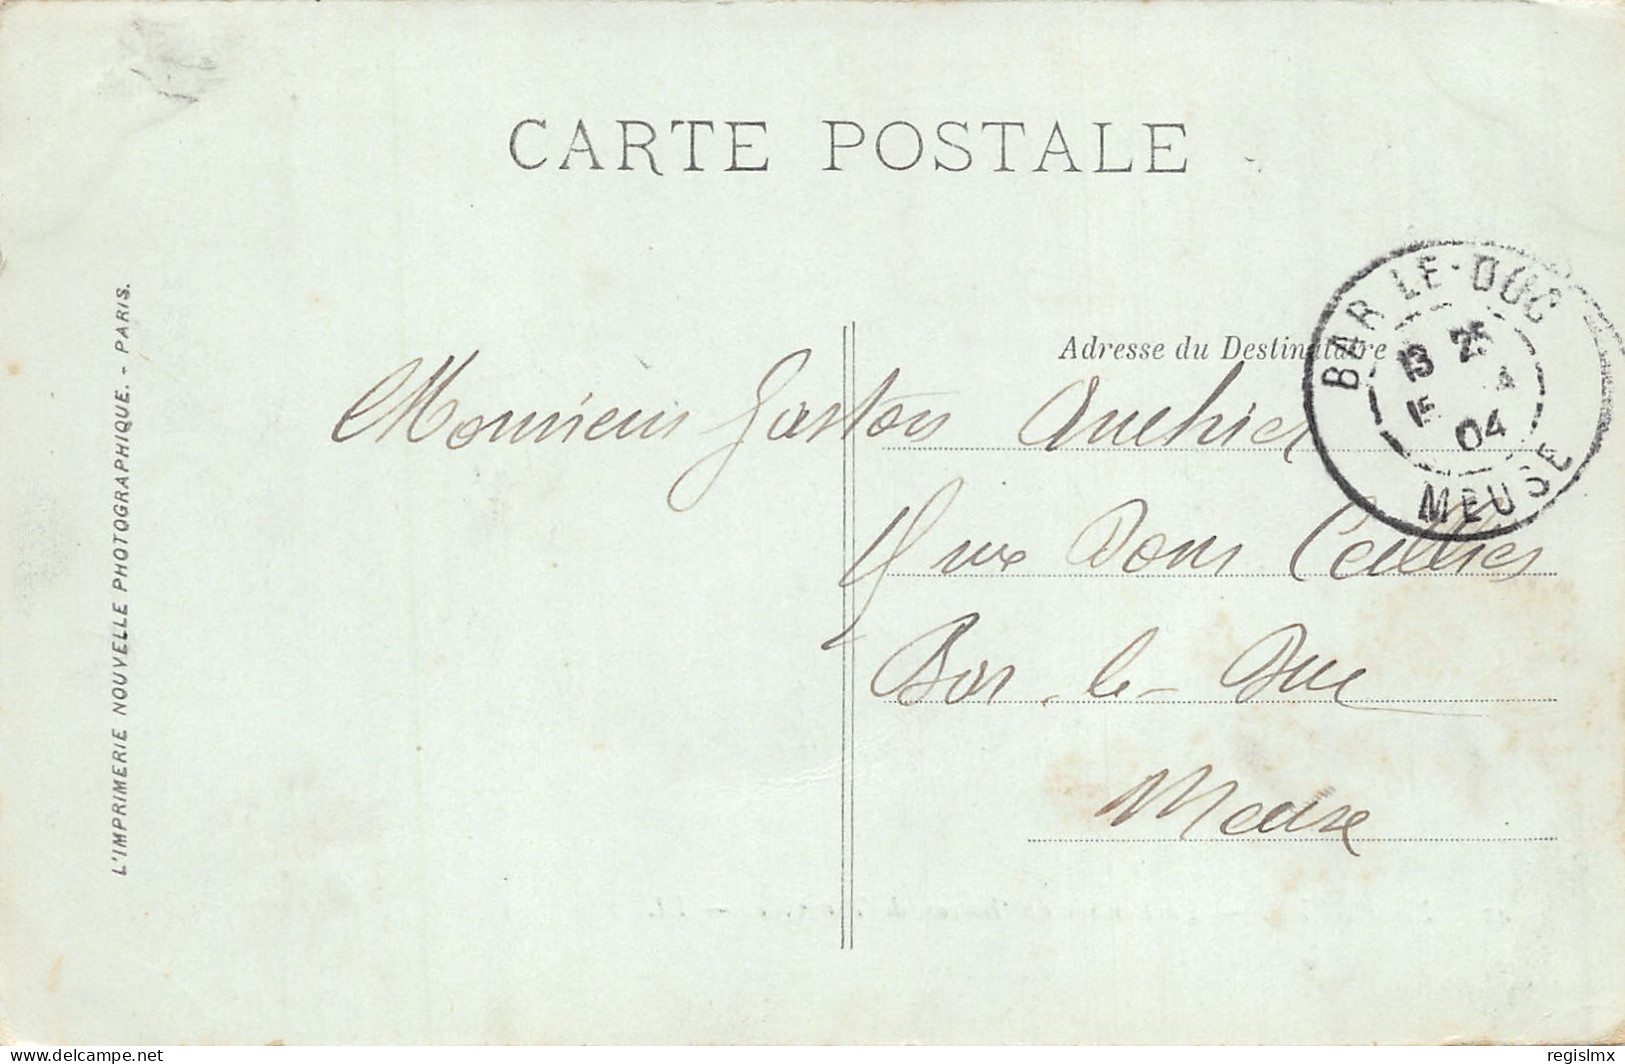 CARTE POSTALE
L'IMPRIMERIE NOUVELLE PHOTOGRAPHIQUE. - PARIS.
Adresse du Destinataire
BAR LE-DUC
13 25
04
MEUSE
Monsieur Gaston
rue Dom Ceillier
Bar-le-Duc
Meuse
delcampe.net
regislmx